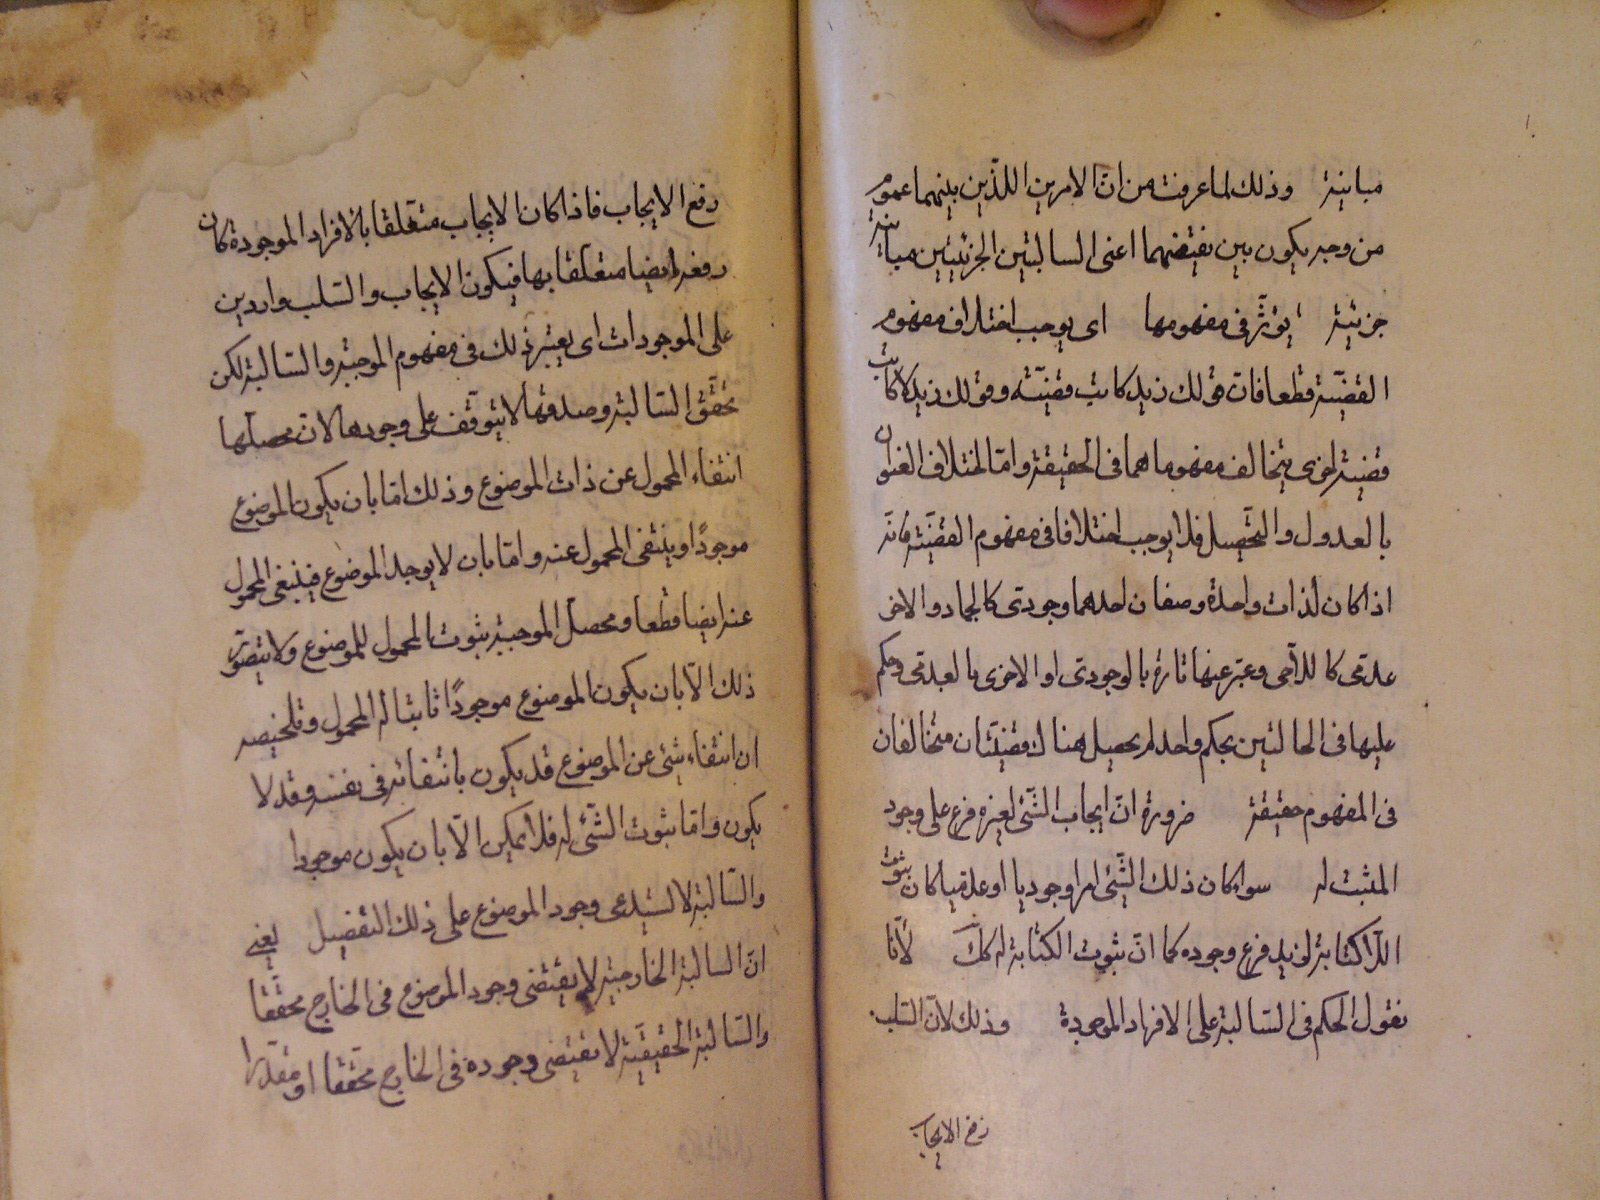 مباينة وذلك لما عرفت من ان الامرين اللذين بينهما عموم
من وجه يكون بين نقيضهما اعنى السالبتين الجزئيتين مباينة
جزئية يؤثر فى مفهومها اى يوجب اختلاف مفهوم
القضية قطعا فان قولك زيد كاتب قضية وقولك زيد لا كاتب
قضية اخرى يتخالف مفهوما هما فى الحقيقة واما اختلاف العنوان
بالعدول والتحصيل فلا يوجب اختلافا فى مفهوم القضية فانه
اذا كان لذات واحدة وصفان احدهما وجودى كالجماد والاخر
عدمى كاللاحى وعبر عنها تارة بالوجودى او الاخرى بالعدمى وحكم
عليها فى الحالتين بحكم واحد لم يحصل هناك قضيتان متخالفان
فى المفهوم حقيقة ضرورة ان ايجاب الشئ لغيره فرع على وجود
المثبت له سواء كان ذلك الشئ امرا وجوديا او عدميا كان ثبوت
اللا كتابة لزيد فرع وجوده كما ان ثبوت الكتابة له كك لانا
نقول الحكم فى السالبة على الافراد الموجودة وذلك لان السلب
رفع الايجاب
رفع الايجاب فاذا كان الايجاب متعلقا بالافراد الموجودة كان
رفعه ايضا متعلقا بها فيكون الايجاب والسلب واردين
على الموجودات اى يعتبر ذلك فى مفهوم الموجبة والسالبة لكن
تحقق السالبة وصدقها لا يتوقف على وجودها لان محصلها
انتفاء المحمول عن ذات الموضوع وذلك اما بان يكون الموضوع
موجودًا وينتفى المحمول عنه واما بان لا يوجد الموضوع فينتفى المحمول
عنه ايضا قطعا ومحصل الموجبة ثبوت المحمول للموضوع ولا يتصور
ذلك الا بان يكون الموضوع موجودًا ثابتا له المحمول وتلخيصه
ان انتفاء شئ عن الموضوع قد يكون بانتفائه فى نفسه وقد لا
يكون واما ثبوت الشئ له فلا يمكن الا بان يكون موجودا
والسالبة لا تستدعى وجود الموضوع على ذلك التفصيل يعنى
ان السالبة الخارجية لا يقتضى وجود الموضوع فى الخارج محققا
والسالبة الحقيقية لا تقتضى وجوده فى الخارج محققا او مقدرا